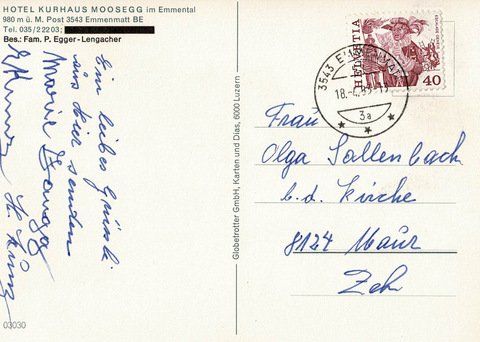 HOTEL KURHAUS MOOSEGG im Emmental
980 m ü. M. Post 3543 Emmenmatt BE
Tel. 035/2 22 03;
Bes.: Fam. P. Egger-Lengacher
Ein liebes Grüssli
aus hier senden
HELVETIA
40
3543 EMMENMATT
18.
3a
Globetrotter GmbH, Karten und Dias, 6000 Luzern
Frau
Olga Sallenbach
b.d. Kirche
8124 Maur
Zch
03030